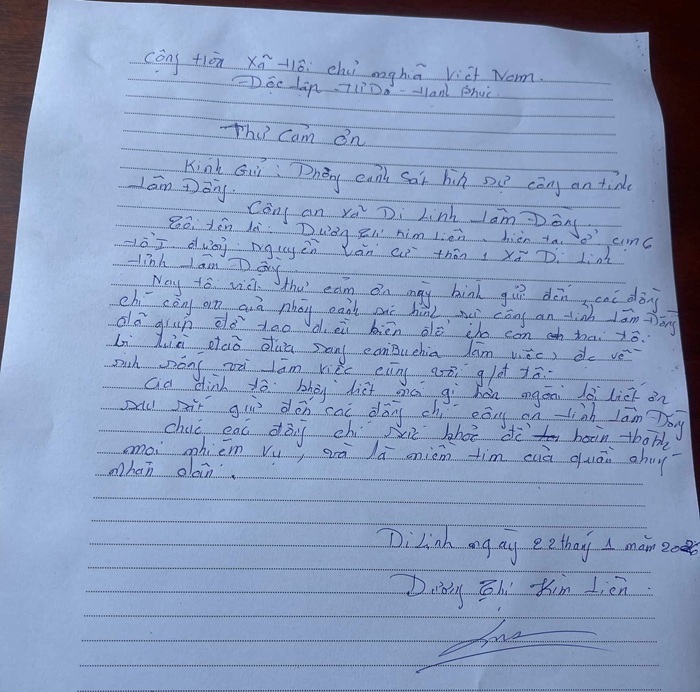 Cộng Hòa Xã Hội chủ nghĩa Việt Nam.
Độc lập - Tự Do - Hạnh Phúc.
Thư cảm ơn
Kính Gửi: Phòng cảnh sát hình sự công an tỉnh
Lâm Đồng.
Công an xã Di Linh Lâm Đồng.
Tôi tên là: Dương Thị Kim Liên, hiện tại ở
tổ 1 đường Nguyễn Văn Cừ thôn 1 xã Di Linh
tỉnh Lâm Đồng.
Nay tôi viết thư cảm ơn này kính gửi đến, các đồng
chí công an của phòng cảnh sác hình sự công an tỉnh Lâm Đồng
đã giúp đỡ tạo điều kiện để cho con trai tôi.
bị lừa đảo đưa sang camBuchia làm việc, đc về
sinh sống và làm việc cùng với g/đt tôi.
Gia đình tôi không biết nói gì hơn ngoài lời biết ơn
sâu sắt gửi đến các đồng chí công an tỉnh Lâm Đồng
chúc các đồng chí sức khỏe để hoàn thành
mọi nhiệm vụ, và là niềm tim của quần chúng
nhân dân.
Di Linh ngày 22 tháng 1 năm 2026
Dương Thị Kim Liên.